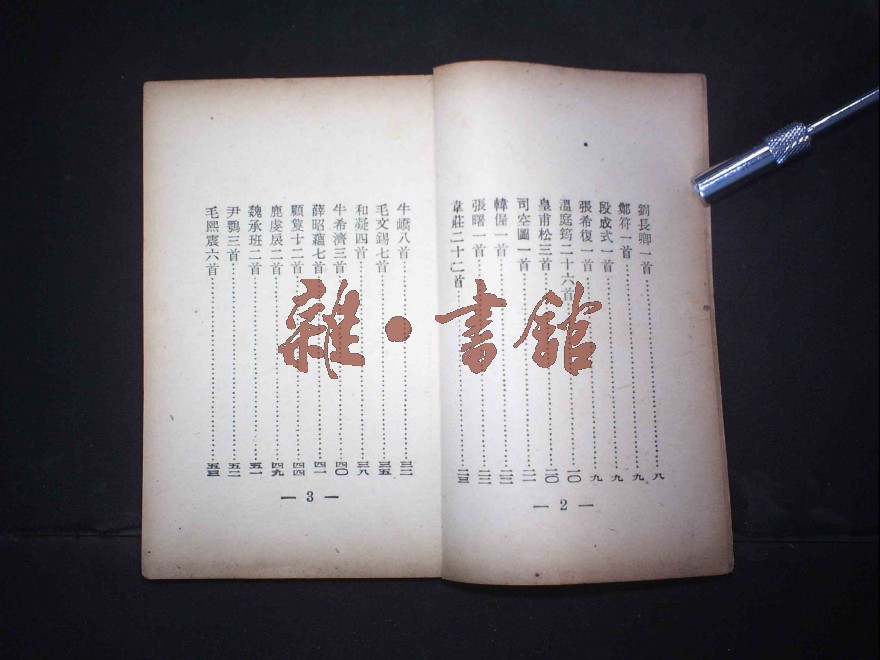 劉長卿一首⋯⋯八
鄭符一首⋯⋯九
段成式一首⋯⋯九
張希復一首⋯⋯九
溫庭筠二十六首⋯⋯一〇
皇甫松三首⋯⋯二〇
司空圖一首⋯⋯二一
韓偓一首⋯⋯二二
張曙一首⋯⋯二二
韋莊二十二首⋯⋯二三
— 2 —
牛嶠八首⋯⋯三二
毛文錫七首⋯⋯三五
和凝四首⋯⋯三八
牛希濟三首⋯⋯四〇
薛昭蘊七首⋯⋯四一
顧敻十二首⋯⋯四四
鹿虔扆二首⋯⋯四九
魏承班二首⋯⋯五一
尹鶚三首⋯⋯五二
毛熙震六首⋯⋯五三
— 3 —
雜·書館